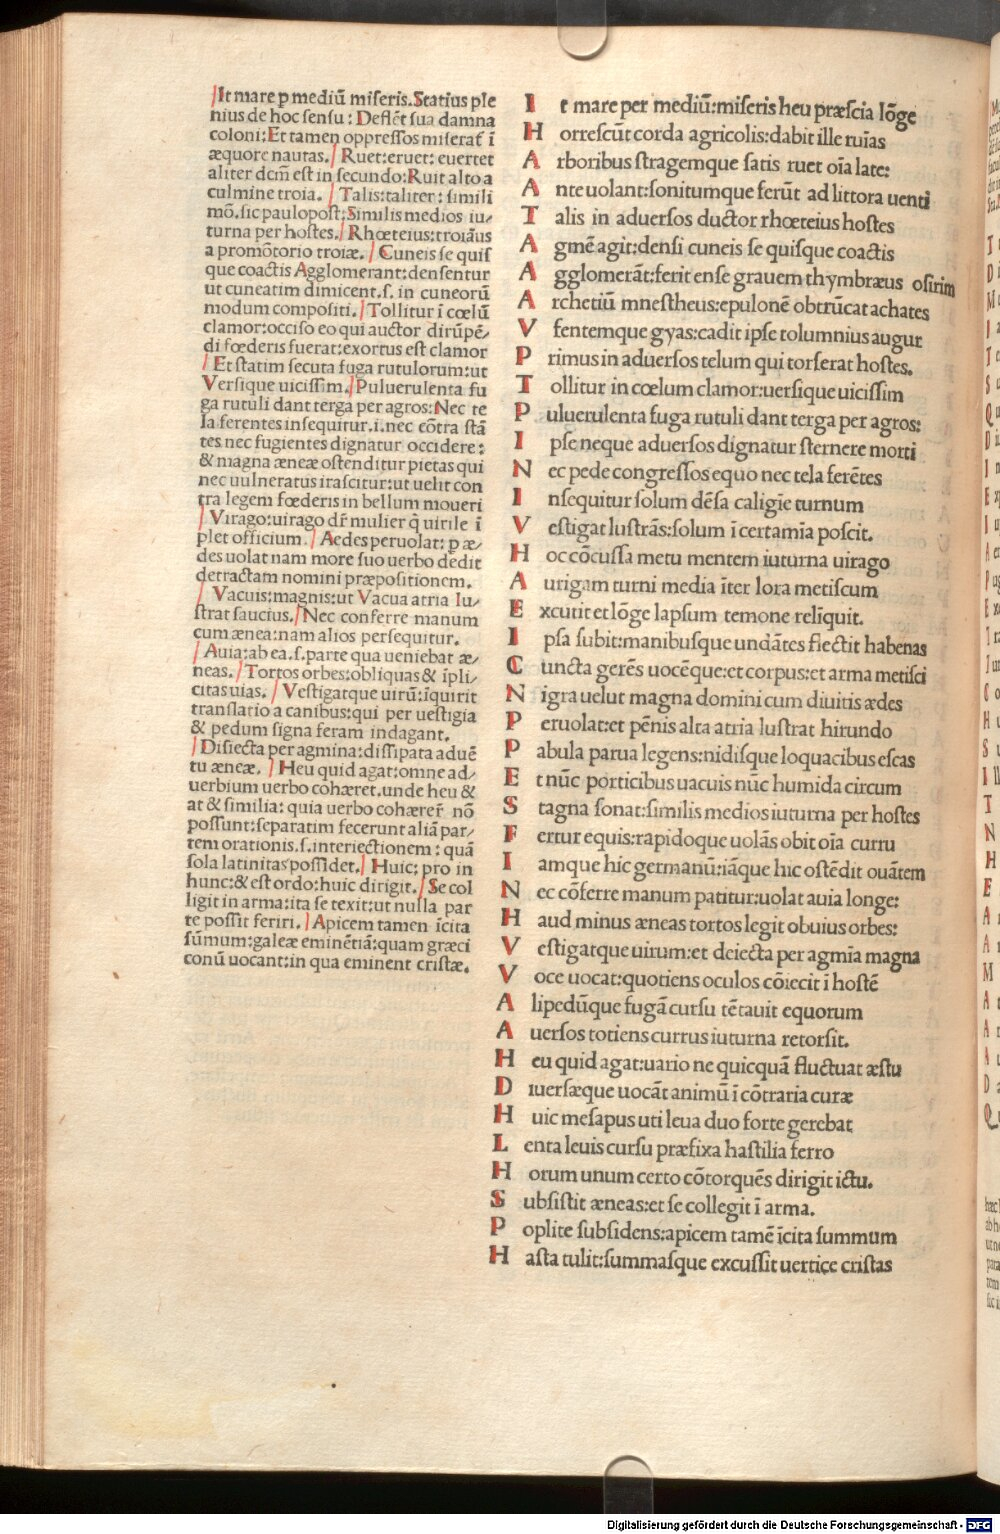 It mare p mediū miseris.Statius ple
nius de hoc sensu: Deflēt sua damna
coloni:Et tamen oppressos miserat̄ ī
æquore nautas. Ruet:eruet: euertet
aliter dcm̄ est in secundo:Ruit alto a
culmine troia. Talis:taliter: simili
mō.sic paulopost:Similis medios iu/
turna per hostes. Rhœteius:troiāus
a promōtorio troiæ. Cuneis se quis
que coactis Agglomerant:densentur
ut cuneatim dimicent.s. in cuneorū
modum compositi. Tollitur ī cœlū
clamor:occiso eo qui auctor dirūpē/
di fœderis fuerat:exortus est clamor
Et statim secuta fuga rutulorum:ut
Versique uicissim. Puluerulenta fu
ga rutuli dant terga per agros:Nec te
la ferentes insequitur.i.nec cōtra stā
tes nec fugientes dignatur occidere:
& magna æneæ ostenditur pietas qui
nec uulneratus irascitur:ut uelit con
tra legem fœderis in bellum moueri
Virago:uirago dr̄ mulier q̄ uirile ī
plet officium. Aedes peruolat: p æ/
des uolat nam more suo uerbo dedit
detractam nomini præpositionem.
Vacuis:magnis:ut Vacua atria lu/
strat saucius. Nec conferre manum
cum ænea:nam alios persequitur.
Auia:ab ea.s.parte qua ueniebat æ/
neas. Tortos orbes:obliquas & īpli/
citas uias. Vestigatque uirū:īquirit
translatio a canibus:qui per uestigia
& pedum signa feram indagant.
Disiecta per agmina:dissipata aduē
tu æneæ. Heu quid agat:omne ad/
uerbium uerbo cohæret.unde heu &
at & similia: quia uerbo cohærer̄ nō
possunt:separatim fecerunt aliā par/
tem orationis.s.interiectionem: quā
sola latinitas possidet. Huic: pro in
hunc:& est ordo:huic dirigit. Se col
ligit in arma:ita se texit:ut nulla par
te possit feriri. Apicem tamen īcita
sūmum:galeæ eminētiā:quam græci
conū uocant:in qua eminent cristæ.
I t mare per mediū:miseris heu præscia lōge
H orrescūt corda agricolis:dabit ille ruīas
A rboribus stragemque satis ruet oīa late:
A nte uolant:sonitumque ferūt ad littora uenti
T alis in aduersos ductor rhœteius hostes
A gmē agit:densi cuneis se quisque coactis
A gglomerāt:ferit ense grauem thymbræus osirim
A rchetiū mnestheus:epulonē obtrūcat achates
V fentemque gyas:cadit ipse tolumnius augur
P rimus in aduersos telum qui torserat hostes.
T ollitur in cœlum clamor:uersique uicissim
P uluerulenta fuga rutuli dant terga per agros:
I pse neque aduersos dignatur sternere morti
N ec pede congressos equo nec tela ferētes
I nsequitur solum dēsa caligīe turnum
V estigat lustrās:solum ī certamīa poscit.
H oc cōcussa metu mentem iuturna uirago
A urigam turni media īter lora metiscum
E xcutit et lōge lapsum temone relīquit.
I psa subit:manibusque undātes flectit habenas
C uncta gerēs uocēque:et corpus:et arma metisci
N igra uelut magna domini cum diuitis ædes
P eruolat:et pēnis alta atria lustrat hirundo
P abula parua legens:nidisque loquacibus escas
E t nūc porticibus uacuis nūc humida circum
S tagna sonat:similis medios iuturna per hostes
F ertur equis:rapidoque uolās obit oīa curru
I amque hic germanū:iāque hic ostēdit ouātem
N ec cōferre manum patitur:uolat auia longe:
H aud minus æneas tortos legit obuius orbes:
V estigatque uirum:et deiecta per agmīa magna
V oce uocat:quotiens oculos cōiecit ī hostē
A lipedūque fugā cursu tētauit equorum
A uersos totiens currus iuturna retorsit.
H eu quid agat:uario ne quicquā fluctuat æstu
D iuersæque uocāt animū ī cōtraria curæ
H uic mesapus uti leua duo forte gerebat
L enta leuis cursu præfixa hastilia ferro
H orum unum certo cōtorquēs dirigit ictu.
S ubsistit æneas:et se collegit ī arma.
P oplite subsidens:apicem tamē īcita summum
H asta tulit:summasque excussit uertice cristas
Digitalisierung gefördert durch die Deutsche Forschungsgemeinschaft - DFG